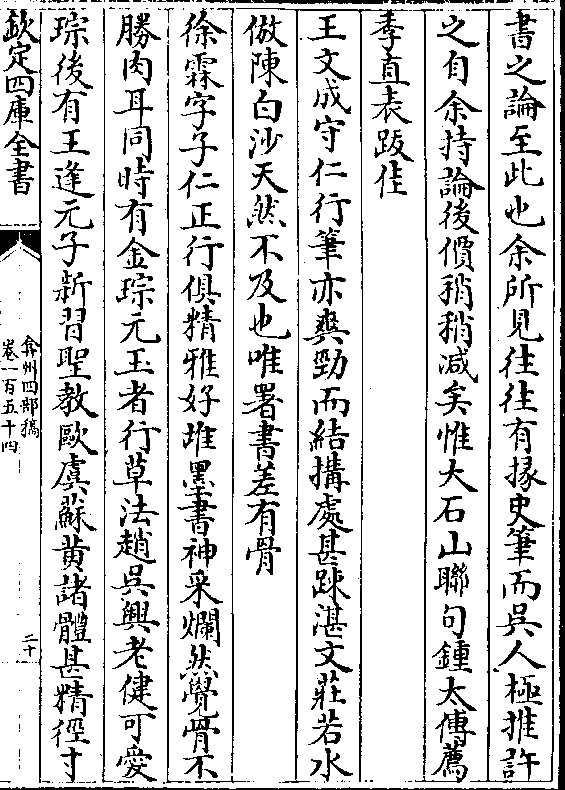 書之論至此也余所見往往有掾史筆而吳人極推許
之自余持論後價稍稍減矣惟大石山聯句鍾太傅薦
季直表䟦佳
王文成守仁行筆亦爽勁而結搆處甚踈湛文莊若水
倣陳白沙天然不及也唯署書差有骨
徐霖字子仁正行俱精雅好堆墨書神采爛然覺骨不
勝肉耳同時有金琮元玉者行草法趙吳興老健可愛
琮後有王逢元子新習聖教歐虞蘇黄諸體甚精徑寸
欽定四庫全書
弇州四部稿
卷一百五十四
二十